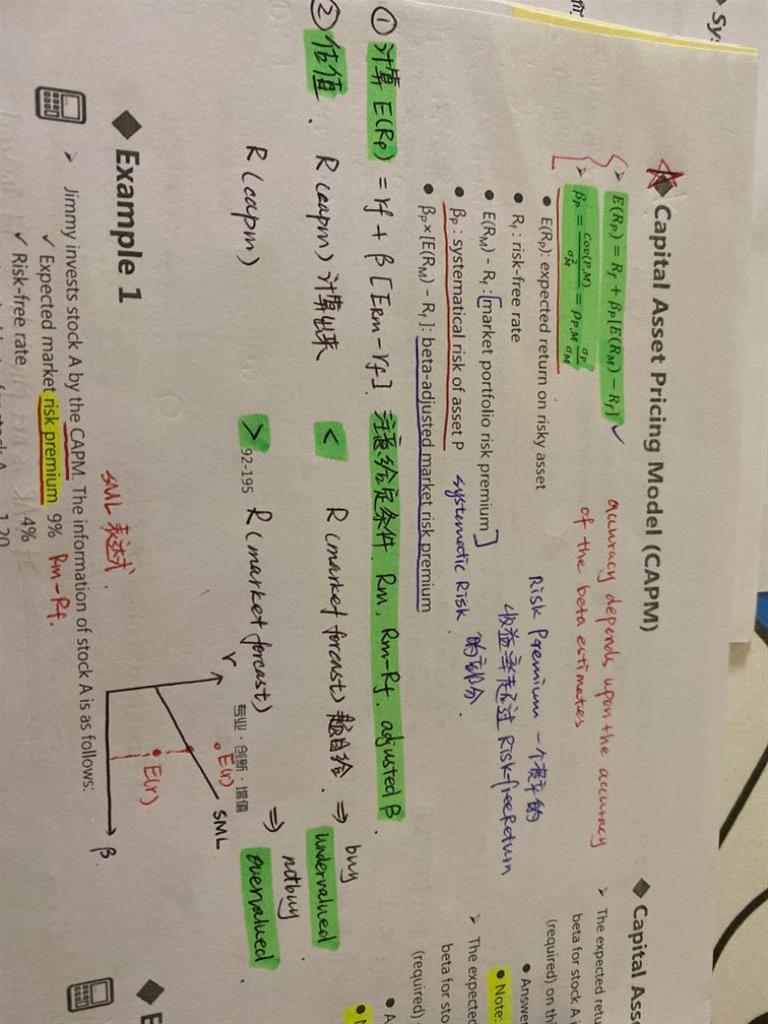 Sy
Capital Asset Pricing Model (CAPM)
E(R_P) = R_f + β_P[E(R_M) − R_f] ✓
β_P = COV(P,M)/σ²_M = ρ_P,M σ_P/σ_M
accuracy depends upon the accuracy
of the beta estimates
E(R_P): expected return on risky asset
R_f : risk-free rate
E(R_M) − R_f : [market portfolio risk premium]
β_P : systematical risk of asset P
systematic Risk
β_P×[E(R_M) − R_f]: beta-adjusted market risk premium
Risk Premium 一个资产的
收益率超过 Risk-free Return
的部分.
① 计算 E(Rp) = rf + β [Erm − rf]. 注意给定条件. Rm, Rm−Rf. adjusted β.
② 估值. R(capm) 计算出来 < R(market forcast) 题目给. ⇒ buy undervalued.
R(capm) > R(market forcast) ⇒ notbuy overvalued
92-195
专业·创新·增值
Example 1
SML 表达式.
Jimmy invests stock A by the CAPM. The information of stock A is as follows:
✓ Expected market risk premium 9% Rm−Rf.
✓ Risk-free rate 4%
1.20
r
E(r)
E(r)
SML
β
Capital Ass
The expected retu
beta for stock A i
(required) on th
Answe
Note:
The expected
beta for sto
(required)
A
N
E